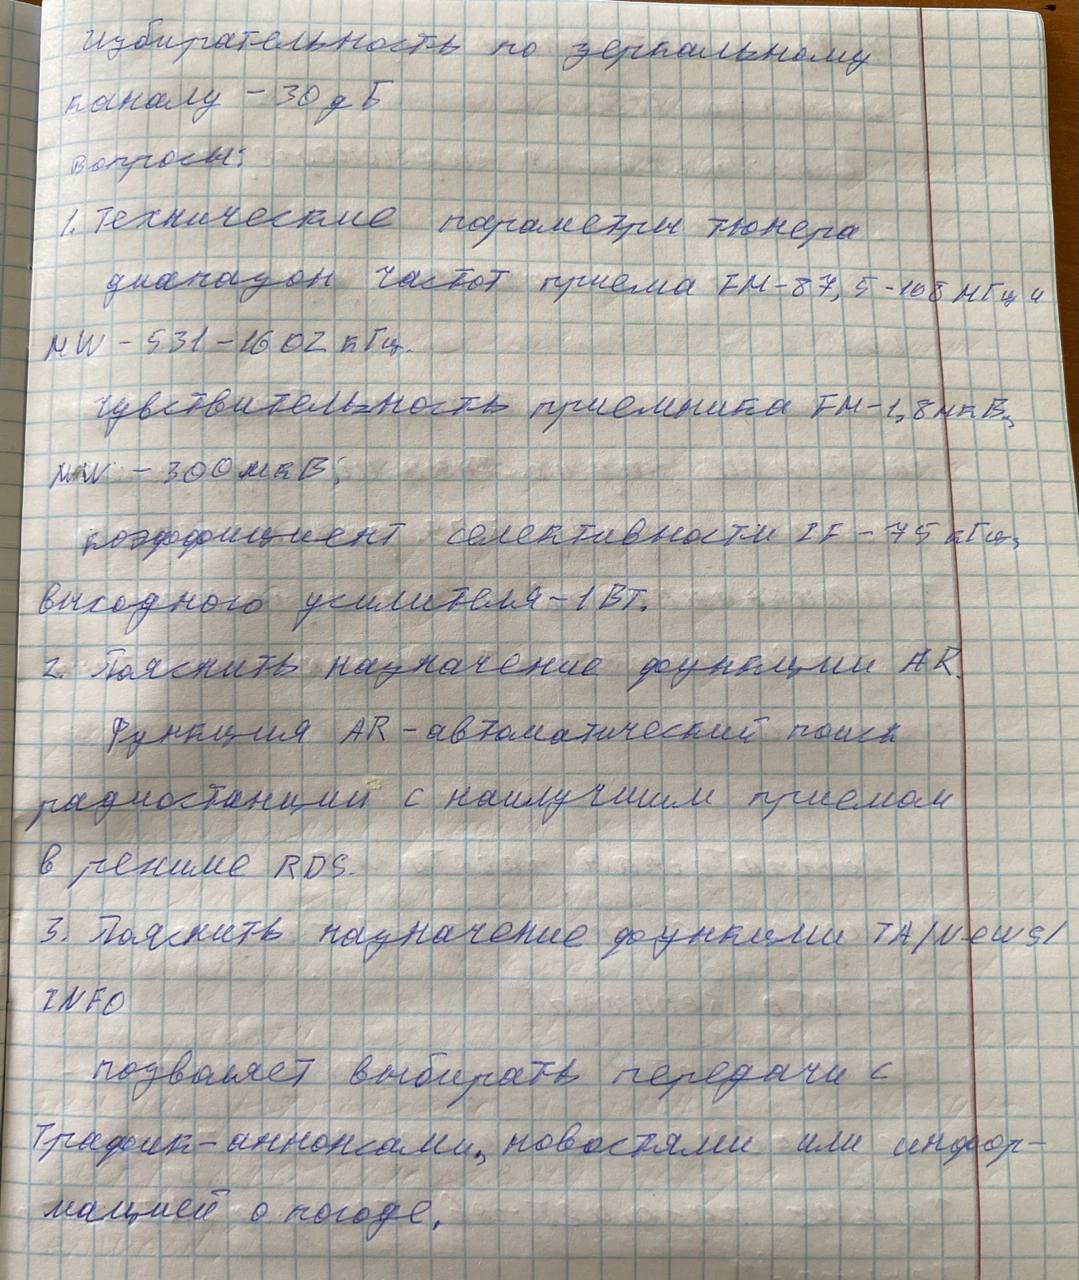 Избирательность по зеркальному
каналу - 30 дБ
Вопросы:
1. Технические параметры тюнера
диапазон частот приема FM-87,5-108 МГц и
MW - 531-1602 кГц.
Чувствительность приемника FM-1,8мкВ,
MW - 300мкВ;
коэффициент селективности IF - 75 кГц,
выходного усилителя-1Вт.
2. Пояснить назначение функции AR.
Функция AR-автоматический поиск
радиостанции с наилучшим приемом
в режиме RDS.
3. Пояснить назначение функции TA/News/
INFO
позволяет выбирать передачи с
Трафик-аннонсами, новостями или инфор-
мацией о погоде.